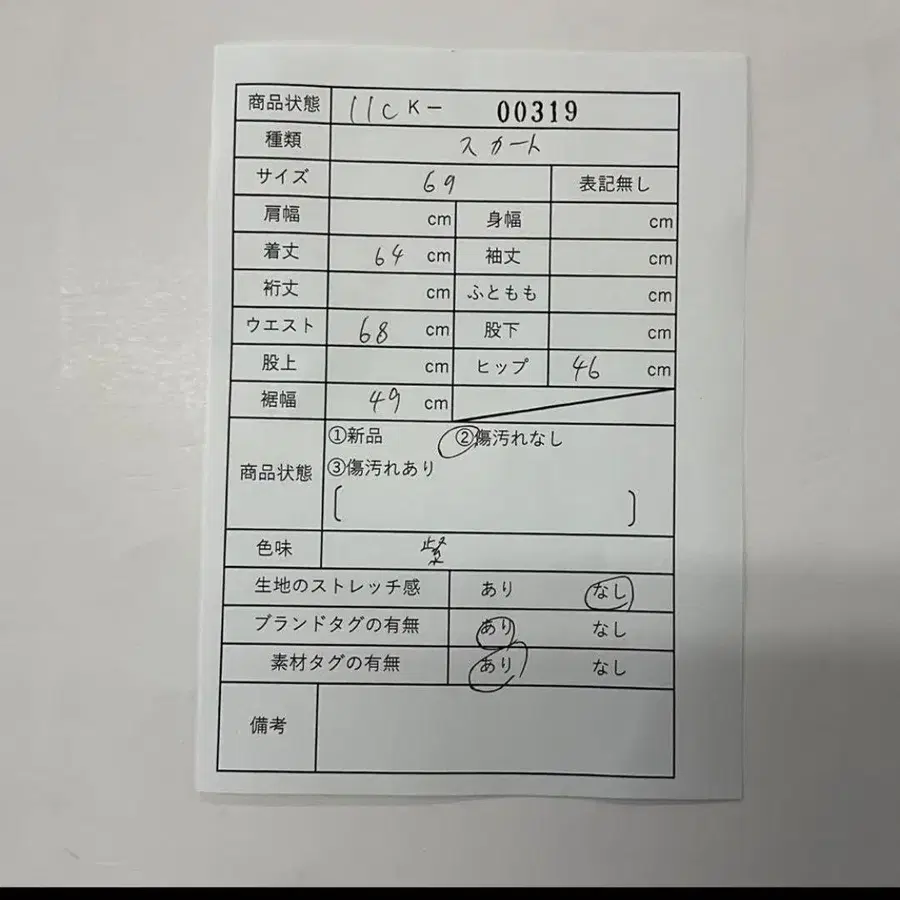 商品状態 11c K- 00319
種類 スカート
サイズ 69 表記無し
肩幅 cm 身幅 cm
着丈 64 cm 袖丈 cm
裄丈 cm ふともも cm
ウエスト 68 cm 股下 cm
股上 cm ヒップ 46 cm
裾幅 49 cm
①新品 ②傷汚れなし
商品状態 ③傷汚れあり
[ ]
色味 紫
生地のストレッチ感 あり なし
ブランドタグの有無 あり なし
素材タグの有無 あり なし
備考